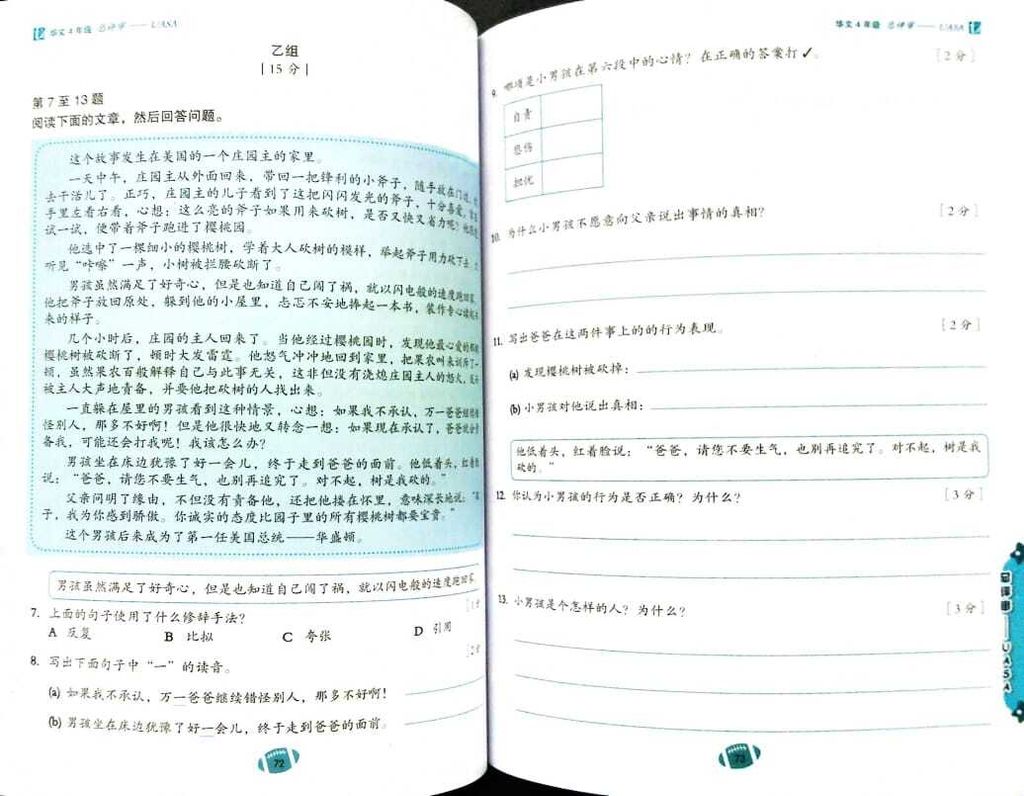 华文 4 年级 总评审——UASA
乙组
[15 分]
第 7 至 13 题
阅读下面的文章，然后回答问题。
这个故事发生在美国的一个庄园主的家里。
一天中午，庄园主从外面回来，带回一把锋利的小斧子，随手放在门边，
去干活儿了。正巧，庄园主的儿子看到了这把闪闪发光的斧子，十分喜爱，
手里左看右看，心想：这么亮的斧子如果用来砍树，是否又快又省力呢？
试一试，便带着斧子跑进了樱桃园。
他选中了一棵细小的樱桃树，学着大人砍树的模样，举起斧子用力砍下去，
听见“咔嚓”一声，小树被拦腰砍断了。
男孩虽然满足了好奇心，但是也知道自己闯了祸，就以闪电般的速度跑回家，
他把斧子放回原处，躲到他的小屋里，忐忑不安地捧起一本书，装作专心读起
来的样子。
几个小时后，庄园的主人回来了。当他经过樱桃园时，发现他最心爱的那棵
樱桃树被砍断了，顿时大发雷霆。他怒气冲冲地回到家里，把果农叫来训斥了一
顿，虽然果农百般解释自己与此事无关，这非但没有浇熄庄园主人的怒火，反而
被主人大声地责备，并要他把砍树的人找出来。
一直躲在屋里的男孩看到这种情景，心想：如果我不承认，万一爸爸继续错
怪别人，那多不好啊！但是他很快地又转念一想：如果现在承认了，爸爸就会责
备我，可能还会打我呢！我该怎么办？
男孩坐在床边犹豫了好一会儿，终于走到爸爸的面前。他低着头，红着脸
说：“爸爸，请您不要生气，也别再追究了。对不起，树是我砍的。”
父亲问明了缘由，不但没有责备他，还把他搂在怀里，意味深长地说：“孩
子，我为你感到骄傲。你诚实的态度比园子里的所有樱桃树都要宝贵。”
这个男孩后来成为了第一任美国总统——华盛顿。
男孩虽然满足了好奇心，但是也知道自己闯了祸，就以闪电般的速度跑回家。
7. 上面的句子使用了什么修辞手法？ [1 分
A 反复 B 比拟 C 夸张 D 引用
8. 写出下面句子中“一”的读音。 [2 分
(a) 如果我不承认，万一爸爸继续错怪别人，那多不好啊！
(b) 男孩坐在床边犹豫了好一会儿，终于走到爸爸的面前。
72
华文 4 年级 总评审——UASA
9. 哪项是小男孩在第六段中的心情？在正确的答案打 ✓。 [2 分]
自责
悲伤
担忧
10. 为什么小男孩不愿意向父亲说出事情的真相？ [2 分]
11. 写出爸爸在这两件事上的的行为表现。 [2 分]
(a) 发现樱桃树被砍掉：
(b) 小男孩对他说出真相：
他低着头，红着脸说：“爸爸，请您不要生气，也别再追究了。对不起，树是我
砍的。”
12. 你认为小男孩的行为是否正确？为什么？ [3 分]
13. 小男孩是个怎样的人？为什么？ [3 分]
总评审——UASA
73